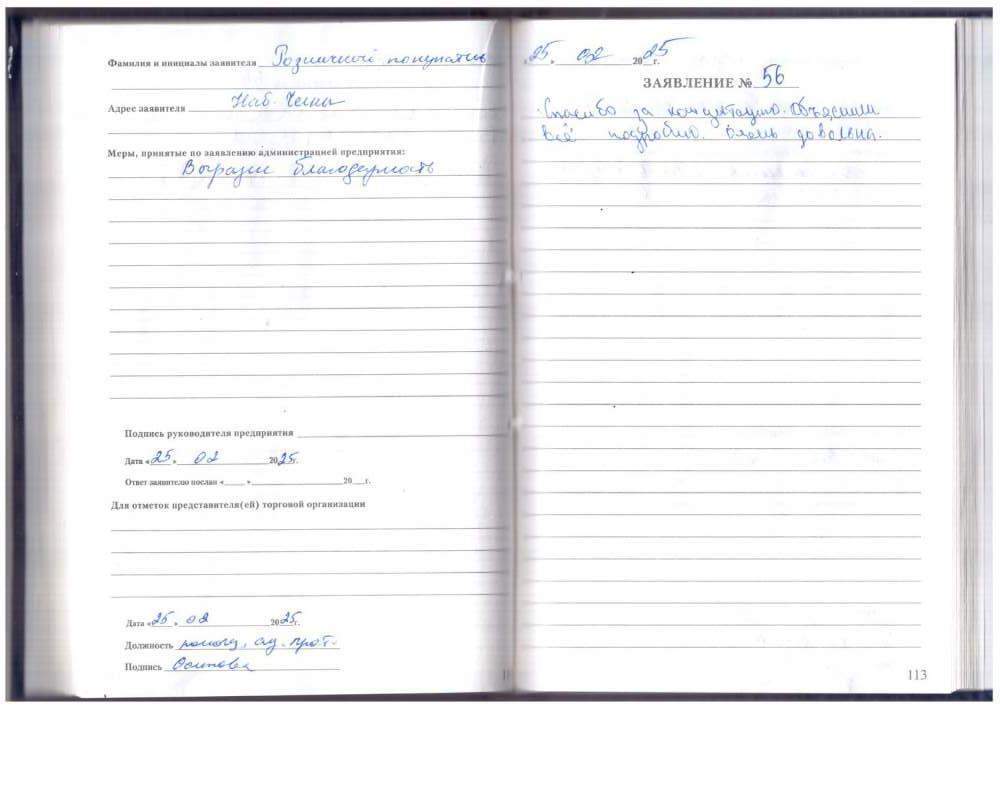 Фамилия и инициалы заявителя Розничный покупатель
Адрес заявителя Наб. Челны
Меры, принятые по заявлению администрацией предприятия:
Выразить благодарность
Подпись руководителя предприятия
Дата «25» 02 2025г.
Ответ заявителю послан «____» ____ 20__г.
Для отметок представителя(ей) торговой организации
Дата «25» 02 2025г.
Должность
Подпись Осипова
«25» 02 2025г.
ЗАЯВЛЕНИЕ № 56
Спасибо за консультацию. Объяснили
всё подробно. Очень довольна.
113